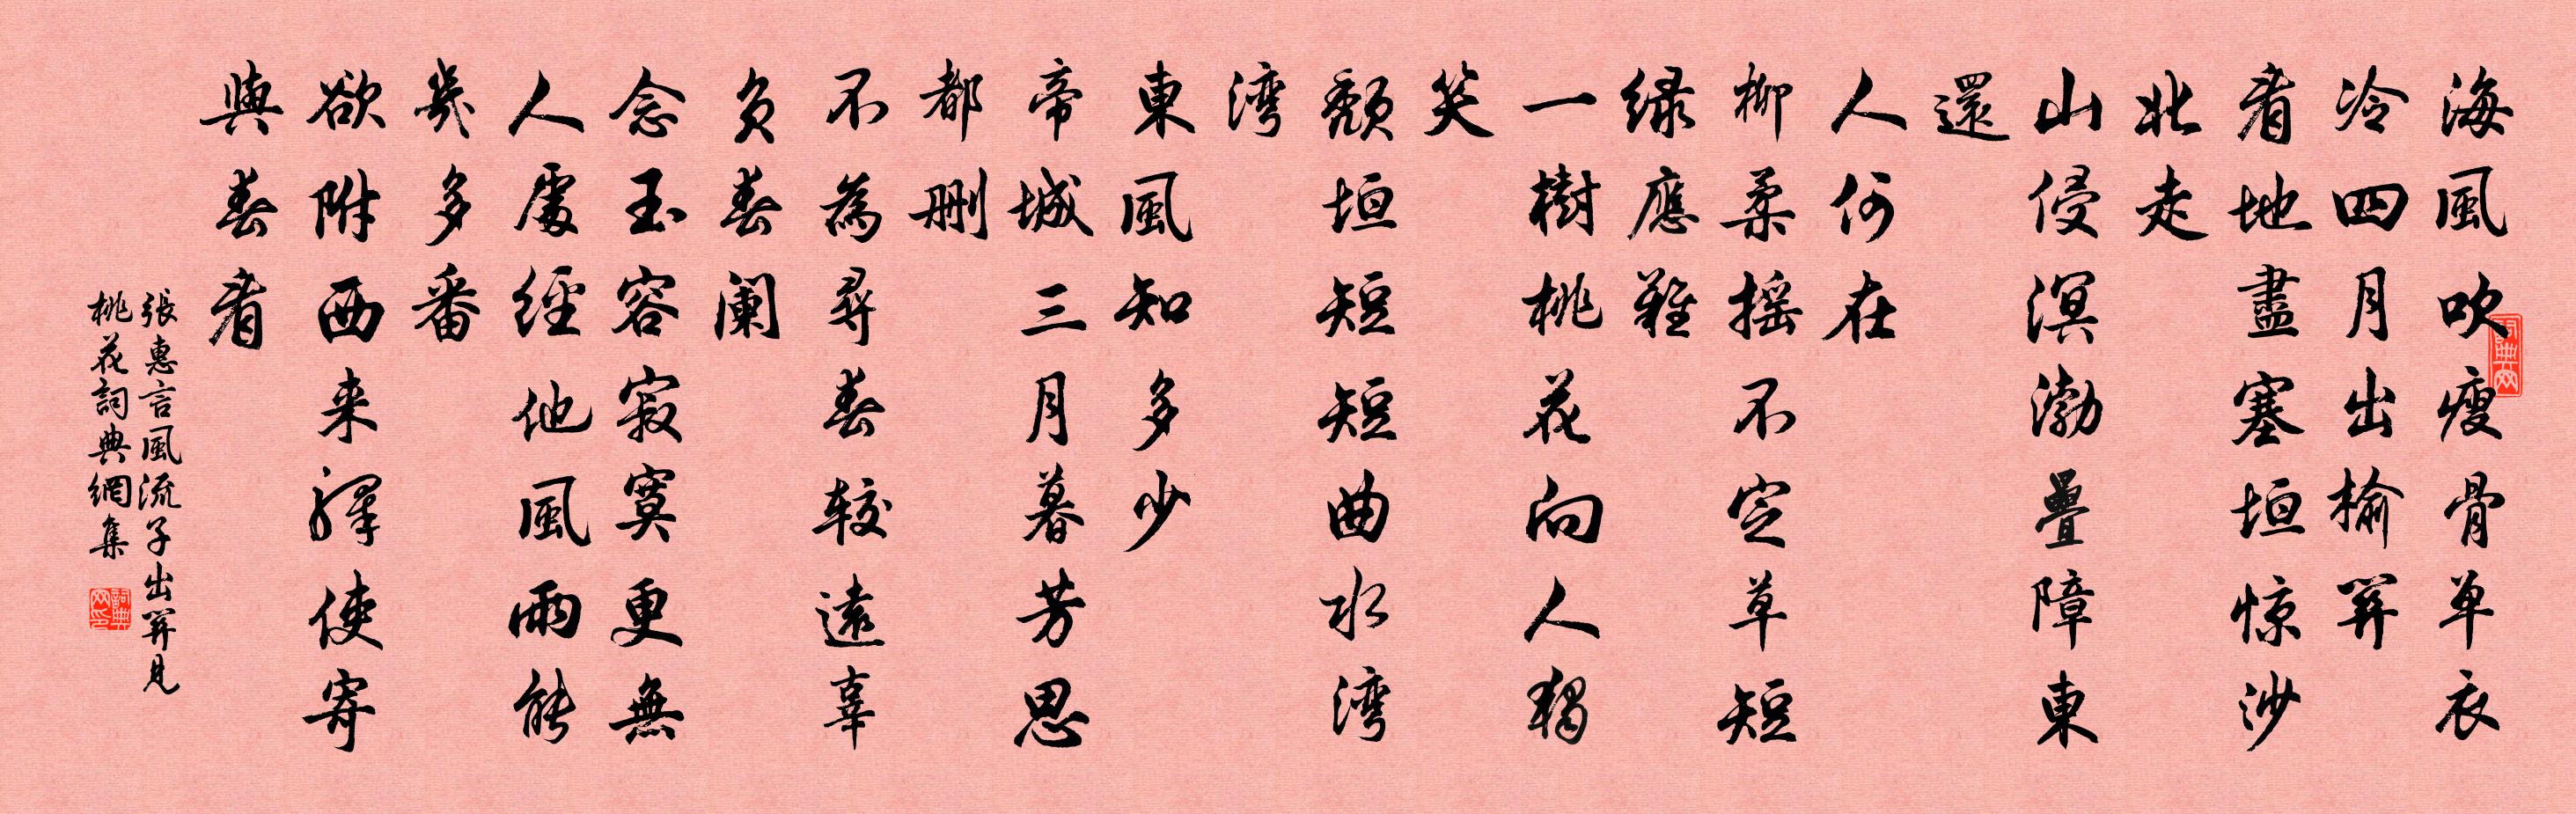 海風吹瘦骨草衣
冷四月出榆關
看地盡塞垣惊沙
北走
山侵溟渤疊障東
還
人何在
柳柔搖不定草短
绿應難
一樹桃花向人獨
笑
頹垣短短曲水湾
湾
東風知多少
帝城三月暮芳思
都删
不為尋春較遠辜
負春阑
念玉容寂寞更無
人處經他風雨能
幾多番
欲附西来驛使寄
與春看
張惠言風流子出關見
桃花詞典網集
詞典网
詞典网印